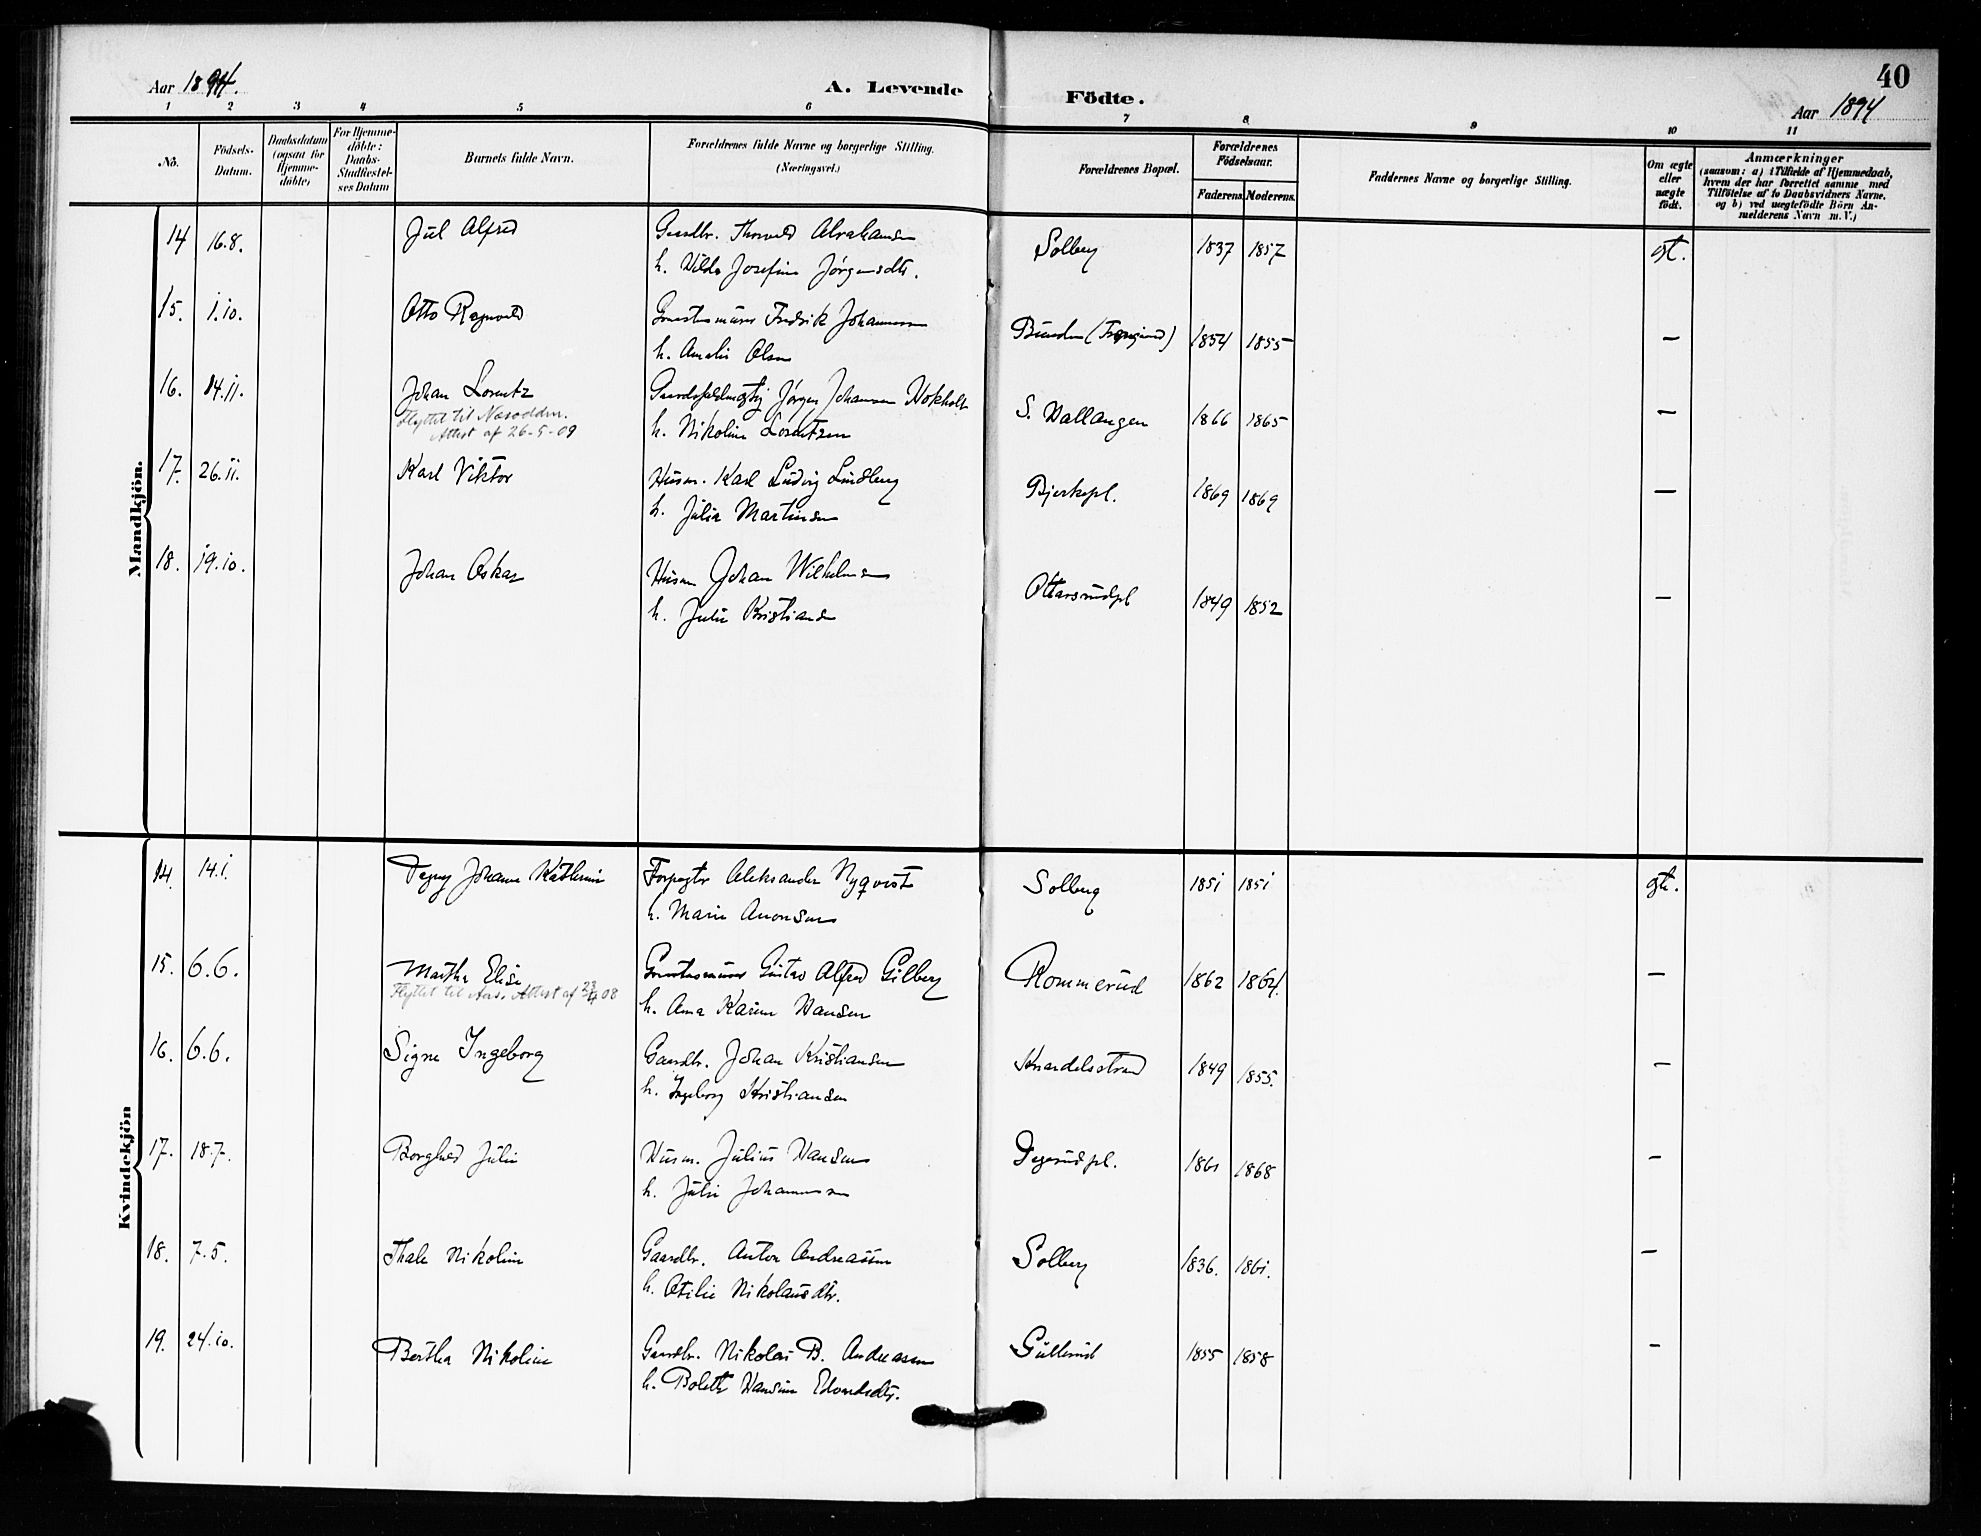 40
Aar 1894.
A. Levende
Födte.
Aar 1894
1 2 3 4 5 6 7 8 9 10 11
No.
Födsels-
Datum.
Daabsdatum
(ogsaa for
Hjemme-
döbte)
For Hjemme-
döbte:
Daabs-
Stadfæstel-
ses Datum
Barnets fulde Navn.
Forældrenes fulde Navne og borgerlige Stilling.
(Næringsvei.)
Forældrenes Bopæl.
Forældrenes
Födselsaar.
Faderens. Moderens.
Faddernes Navne og borgerlige Stilling.
Om ægte
eller
uægte
födt.
Anmærkninger
(saasom: a) i Tilfælde af Hjemmedaab,
hvem der har forrettet samme med
Tilföielse af to Daabsvidners Navne.
og b) ved uægtefödte Börn An-
melderens Navn m. V.)
Mandkjön.
14 16.8. Jul Alfred Gaardbr. Thorvald Abrahamsen Solberg 1837 1857 gt.
h. Hilda Josefine Jørgensdtr.
15. 1.10. Otto Ragnvald Fredrik Johannessen 1854 1855 —
h. Amalie Olsen
16. 14.11. Johan Lorentz Gaardsfuldmægtig Jørgen Johansen Hokholt S. Hallangen 1866 1865 —
Flyttet til Næsodden. h. Nikoline Lorentzen
Attest af 26-5-09
17. 26.11. Karl Viktor Husm. Karl Ludvig Lindberg Bjerkepl. 1869 1869 —
h. Julia Martinsen
18. 19.10. Johan Oskar Husm Johan Wilhelmsen Ottarsrudpl 1849 1852 —
h. Julie Kristiansen
Kvindekjön
14. 14.1. Dagny Johanne Kathrine Forpagter Aleksander Nyqvist Solberg 1851 1851 gt.
h. Marie Aronsen
15. 6.6. Martha Elise Gustav Alfred Gilberg Rommerud 1862 1864. —
Flyttet til Aas. Attest af 23/4 08 h. Anna Karine Hansen
16. 6.6. Signe Ingeborg Gaardbr. Johan Kristiansen Knardalsstrand 1849 1855. —
h. Ingeborg Kristiansen
17. 18.7. Borghild Julie Husm. Julius Hansen Digerudpl. 1861 1868 —
h. Julie Johannessen
18. 7.5. Thale Nikoline Gaardbr. Anton Andreassen Solberg 1836. 1861. —
h. Otilie Nikolausdtr.
19. 24.10. Bertha Nikoline Gaardbr. Nikolai B. Andreasen Gullerud 1855 1858 —
h. Bolette Hansine Edvardsdtr.